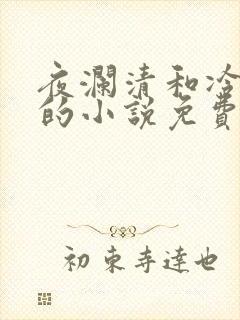 夜澜清和冷
的小說免費
初東寺達也